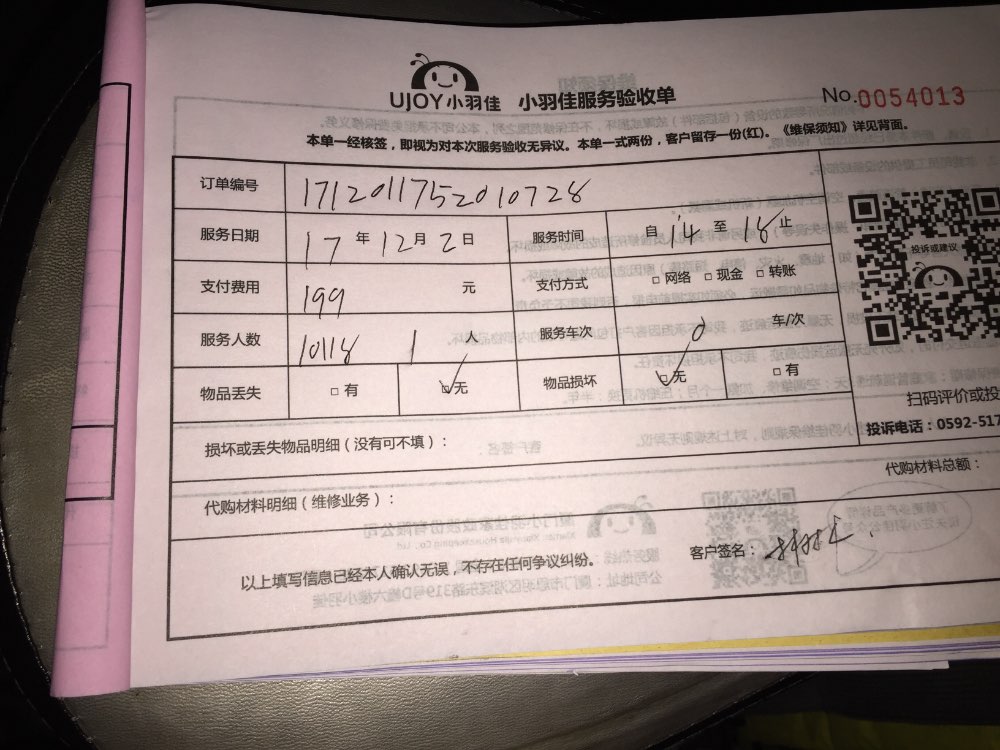 UJOY小羽佳 小羽佳服务验收单 No.0054013
本单一经核签，即视为对本次服务验收无异议。本单一式两份，客户留存一份(红)。《维保须知》详见背面。
订单编号 1712011752010728
服务日期 17年12月2日 服务时间 自14至18止
支付费用 199元 支付方式 □网络 □现金 □转账
服务人数 10118 1人 服务车次 0车/次
物品丢失 □有 ☑无 物品损坏 ☑无 □有
投诉或建议
扫码评价或投
投诉电话：0592-517
损坏或丢失物品明细（没有可不填）：
代购材料明细（维修业务）： 代购材料总额：
以上填写信息已经本人确认无误，不存在任何争议纠纷。 客户签名：